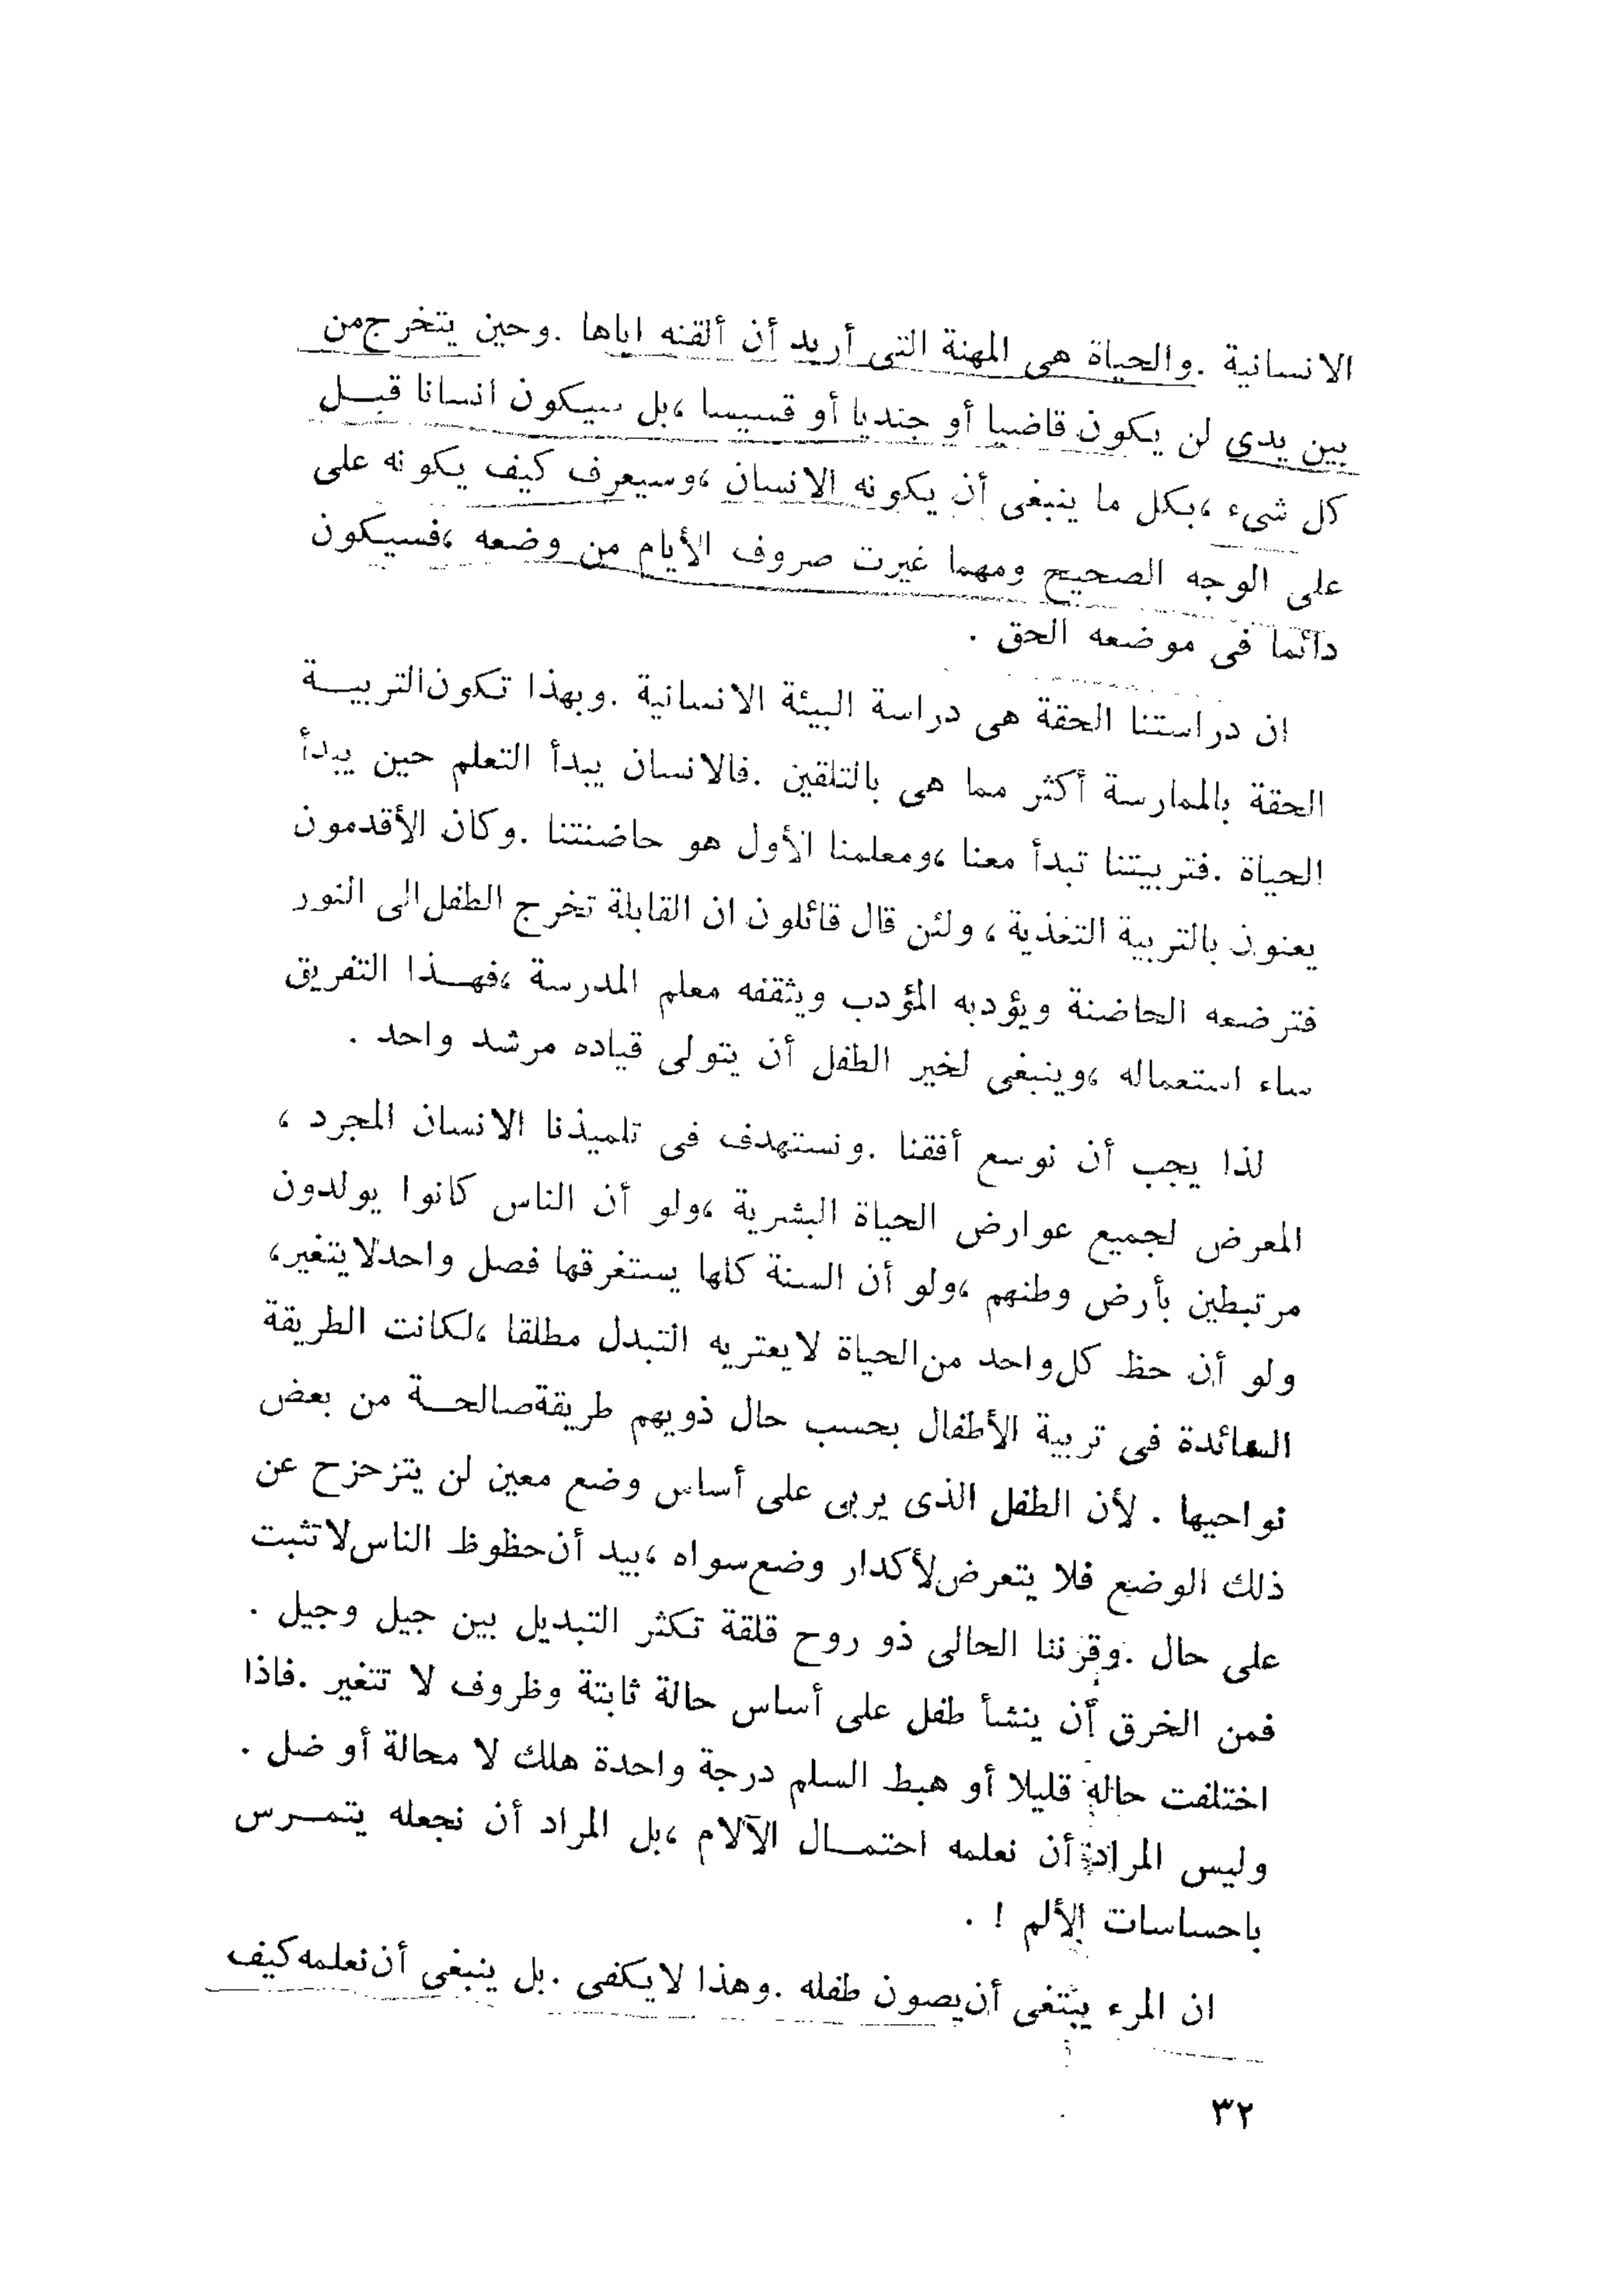 الانسانية . والحياة هى المهنة التى أريد أن ألقنه اياها . وحين يتخرج من
بين يدى لن يكون قاضيا أو جنديا أو قسيسا ، بل سيكون انسانا قبــل
كل شىء ، بكل ما ينبغى أن يكونه الانسان ، وسيعرف كيف يكونه على
على الوجه الصحيح ومهما غيرت صروف الأيام من وضعه ، فسيكون
دائما فى موضعه الحق .
ان دراستنا الحقة هى دراسة البيئة الانسانية . وبهذا تكون التربيــة
الحقة بالممارسة أكثر مما هى بالتلقين . فالانسان يبدأ التعلم حين يبدأ
الحياة . فتربيتنا تبدأ معنا ، ومعلمنا الأول هو حاضنتنا . وكان الأقدمون
يعنون بالتربية التغذية ، ولئن قال قائلون ان القابلة تخرج الطفل الى النور
فترضعه الحاضنة ويؤدبه المؤدب ويثقفه معلم المدرسة ، فهــذا التفريق
ساء استعماله ، وينبغى لخير الطفل أن يتولى قياده مرشد واحد .
لذا يجب أن نوسع أفقنا . ونستهدف فى تلميذنا الانسان المجرد ،
المعرض لجميع عوارض الحياة البشرية ، ولو أن الناس كانوا يولدون
مرتبطين بأرض وطنهم ، ولو أن السنة كلها يستغرقها فصل واحد لايتغير ،
ولو أن حظ كل واحد من الحياة لايعتريه التبدل مطلقا ، لكانت الطريقة
السائدة فى تربية الأطفال بحسب حال ذويهم طريقة صالحــة من بعض
نواحيها . لأن الطفل الذى يربى على أساس وضع معين لن يتزحزح عن
ذلك الوضع فلا يتعرض لأكدار وضع سواه ، بيد أن حظوظ الناس لاتثبت
على حال . وقرننا الحالى ذو روح قلقة تكثر التبديل بين جيل وجيل .
فمن الخرق أن ينشأ طفل على أساس حالة ثابتة وظروف لا تتغير . فاذا
اختلفت حاله قليلا أو هبط السلم درجة واحدة هلك لا محالة أو ضل .
وليس المراد أن نعلمه احتمــال الآلام ، بل المراد أن نجعله يتمــرس
باحساسات الألم ! .
ان المرء يبتغى أن يصون طفله . وهذا لايكفى . بل ينبغى أن نعلمه كيف
٣٢